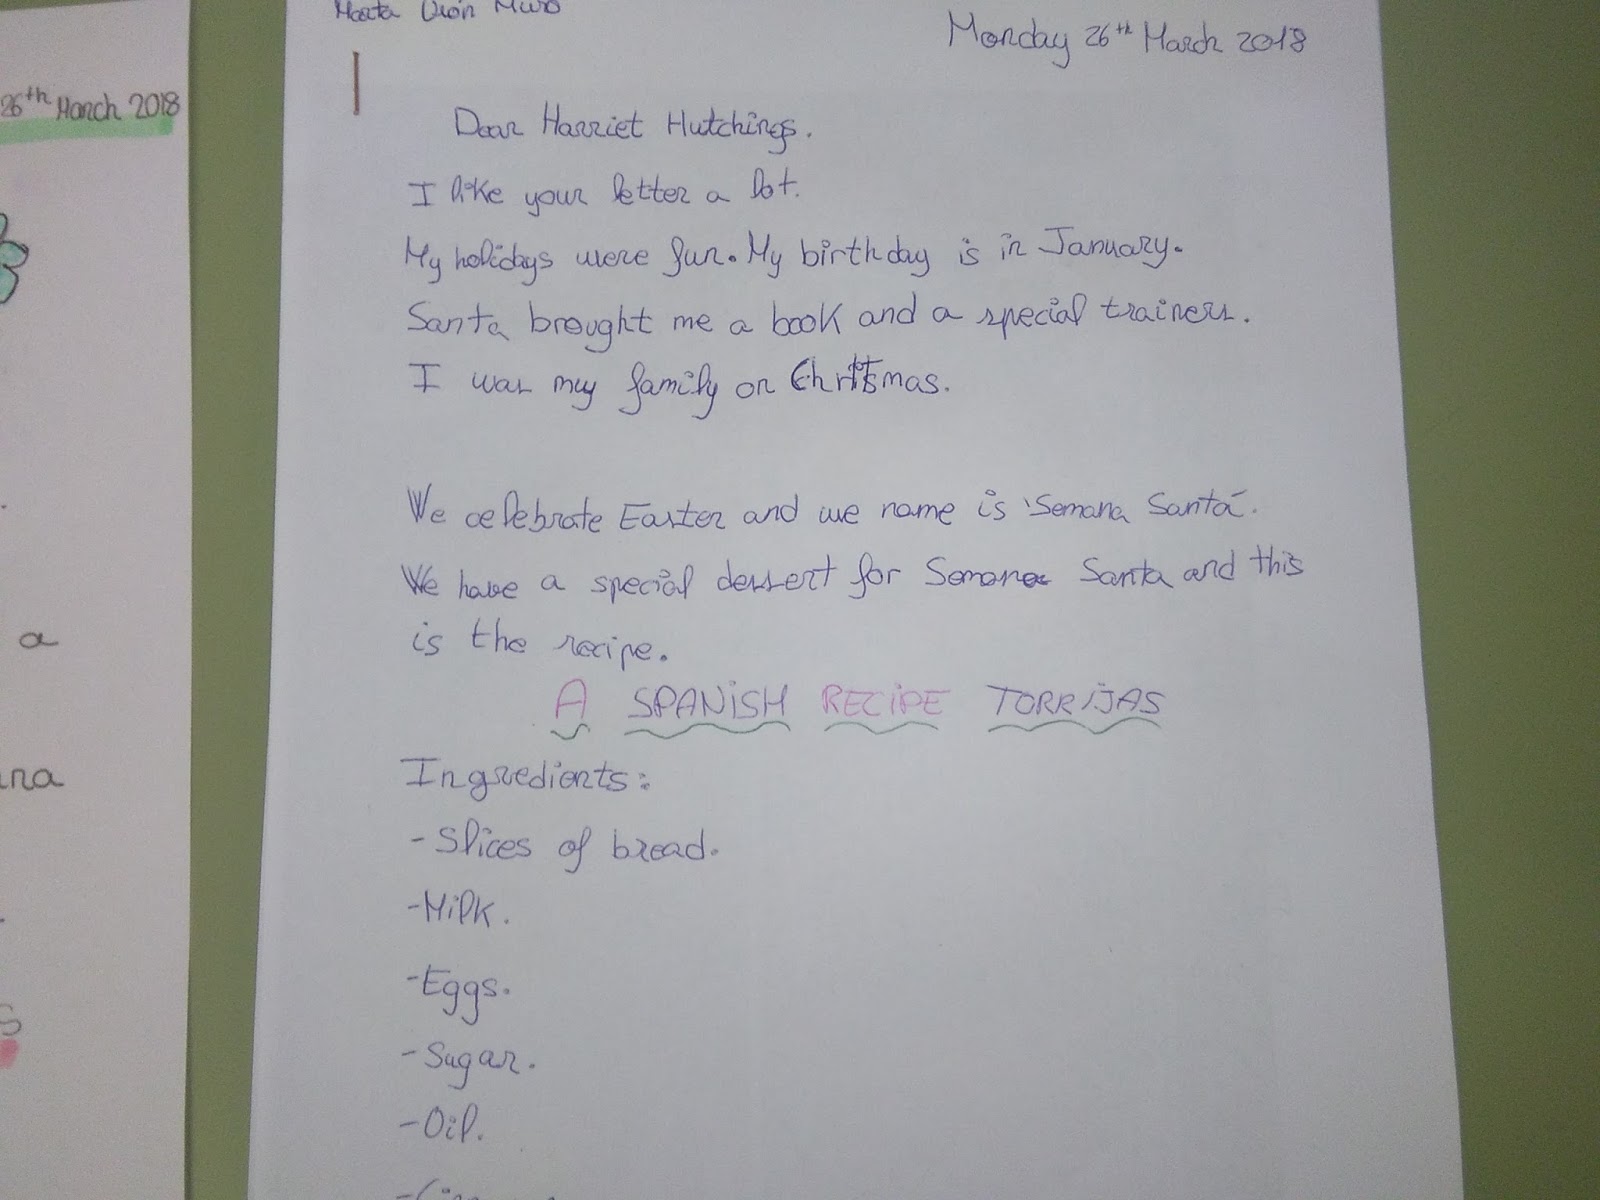 26th March 2018
a
na
Marta
Monday 26th March 2018
Dear Harriet Hutchings.
I like your letter a lot.
My holidays were fun. My birthday is in January.
Santa brought me a book and a special trainers.
I was my family on Christmas.
We celebrate Easter and we name is 'Semana Santa'.
We have a special dessert for Semana Santa and this
is the recipe.
A SPANISH RECIPE TORRIJAS
Ingredients:
-Slices of bread.
-Milk.
-Eggs.
-Sugar.
-Oil.